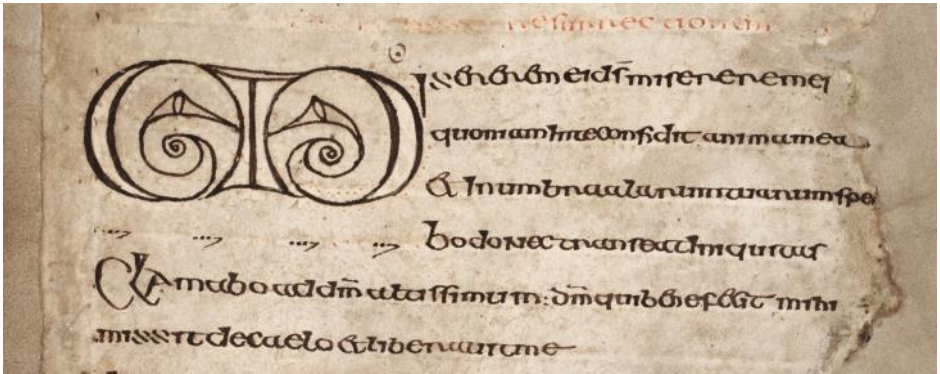 resurrectionem
Misserere mei ds̄ miserere mei
quoniam inte confidit anima mea
& inumbra alarum tuarum spe
bo donec transeat iniquitas
Clamabo ad dm̄ altissimum: dm̄ qui benefecit mihi
missit decaelo & liberauit me